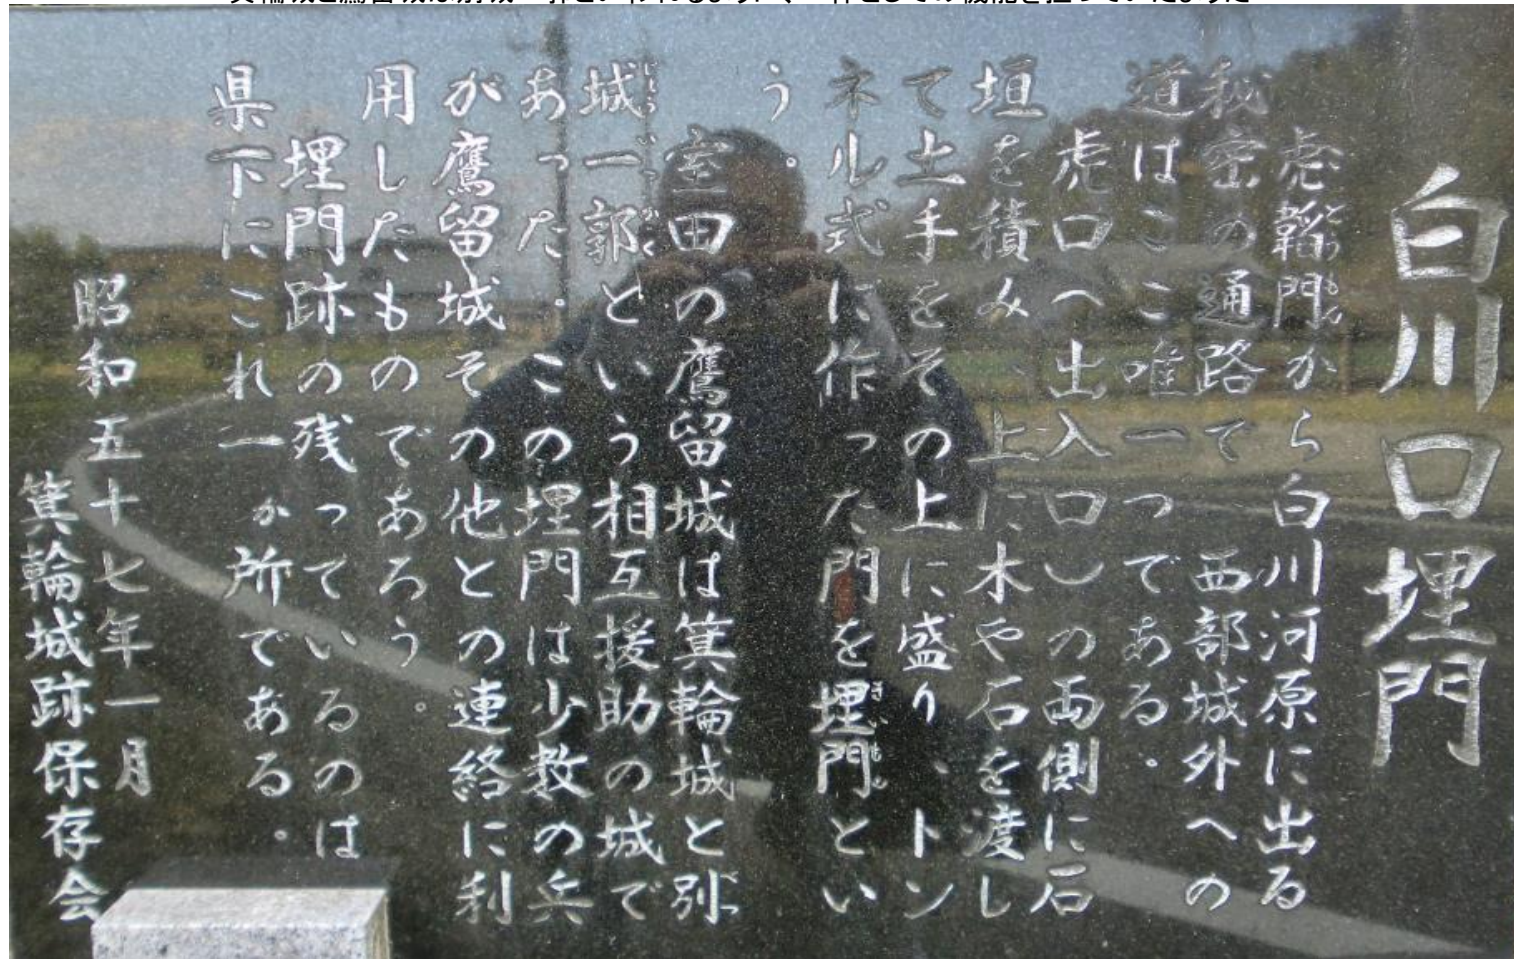 白川口埋門
虎韜門から白川河原に出る
秘密の通路で 西部城外への
道はここ唯一つである.
虎口へ出入口)の両側に石
垣を積み、上に木や石を渡し
て土手をその上に盛り、トン
ネル式に作った門を埋門とい
う。
室田の鷹留城は箕輪城と別
城一郭という相互援助の城で
あった. この埋門は少数の兵
が鷹留城その他との連絡に利
用したものであろう。
埋門跡の残っているのは
県下にこれ一ヵ所である.
昭和五十七年一月
箕輪城跡保存会